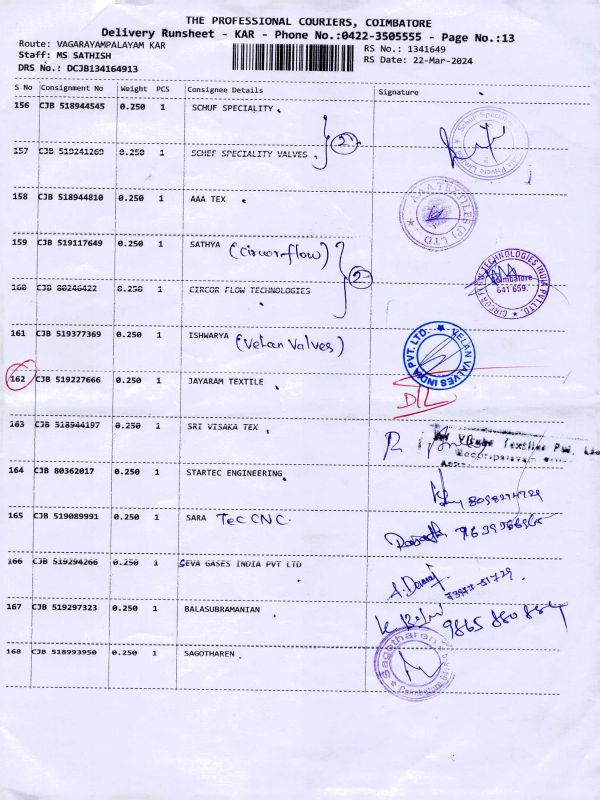 THE PROFESSIONAL COURIERS, COIMBATORE
Delivery Runsheet - KAR - Phone No.:0422-3505555 - Page No.:13
Route: VAGARAYAMPALAYAM KAR RS No.: 1341649
Staff: MS SATHISH RS Date: 22-Mar-2024
DRS No.: DCJB134164913
S No Consignment No Weight PCS Consignee Details Signature
156 CJB 518944545 0.250 1 SCHUF SPECIALITY
2
157 CJB 519241269 0.250 1 SCHEF SPECIALITY VALVES
158 CJB 518944810 0.250 1 AAA TEX
AAA TEXTILES (P) LTD
159 CJB 519117649 0.250 1 SATHYA (Circorflow)
2
160 CJB 80246422 0.250 1 CIRCOR FLOW TECHNOLOGIES
CIRCOR FLOW TECHNOLOGIES INDIA PVT LTD.
Coimbatore
641 659.
161 CJB 519377369 0.250 1 ISHWARYA (Velan Valves)
VELAN VALVES INDIA PVT. LTD.
162 CJB 519227666 0.250 1 JAYARAM TEXTILE
163 CJB 518944197 0.250 1 SRI VISAKA TEX
Textiles Pvt.
164 CJB 80362017 0.250 1 STARTEC ENGINEERING
165 CJB 519089991 0.250 1 SARA Tec CNC
166 CJB 519294266 0.250 1 SEVA GASES INDIA PVT LTD
167 CJB 519297323 0.250 1 BALASUBRAMANIAN
9865 880 884
168 CJB 518993950 0.250 1 SAGOTHAREN
Sagotharen
Coimbatore